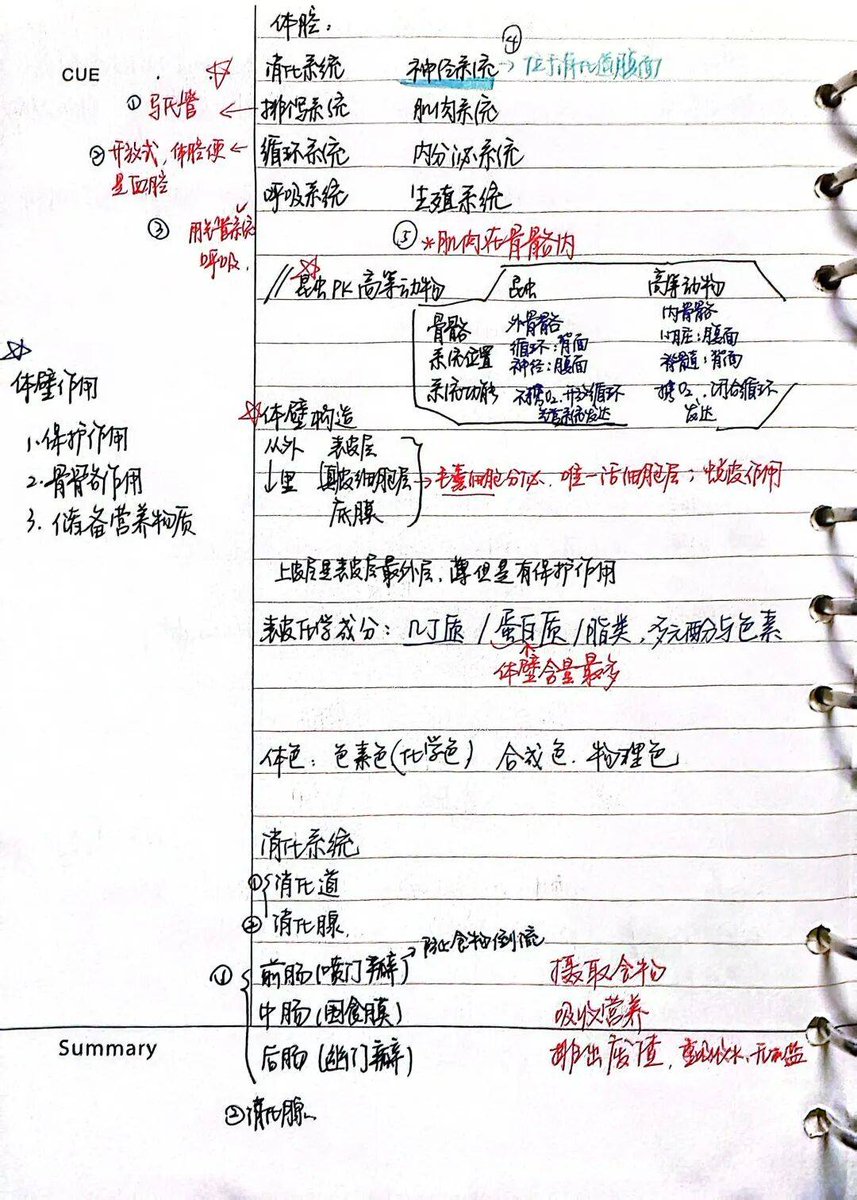 体腔:
CUE
消化系统 神经系统→位于消化道腹面 ④
①马氏管 ← 排泄系统 肌肉系统
②开放式,体腔便是血腔 ← 循环系统 内分泌系统
呼吸系统 生殖系统
③ 用气管系统呼吸.
⑤ *肌肉在骨骼内
昆虫PK高等动物 昆虫 高等动物
骨骼 外骨骼 内骨骼
系统位置 循环:背面 心脏:腹面
神经:腹面 脊髓:背面
系统功能 不携O₂.开放循环 携O₂.闭合循环
气管系统发达 发达
体壁作用
1.保护作用
2.骨骼作用
3.储备营养物质
体壁构造
从外 表皮层
↓里 真皮细胞层 → 毛囊细胞分泌.唯一活细胞层;蜕皮作用
底膜
上皮层是表皮层最外层,薄但是有保护作用
表皮化学成分:几丁质/蛋白质/脂类,多元酚与色素
体壁含量最多
体色:色素色(化学色) 合成色.物理色
消化系统
①消化道
②消化腺
① 前肠(喷门瓣)→防止食物倒流 摄取食物
中肠(围食膜) 吸收营养
Summary
后肠(幽门瓣) 排出废渣,重吸收水、无机盐
②消化腺